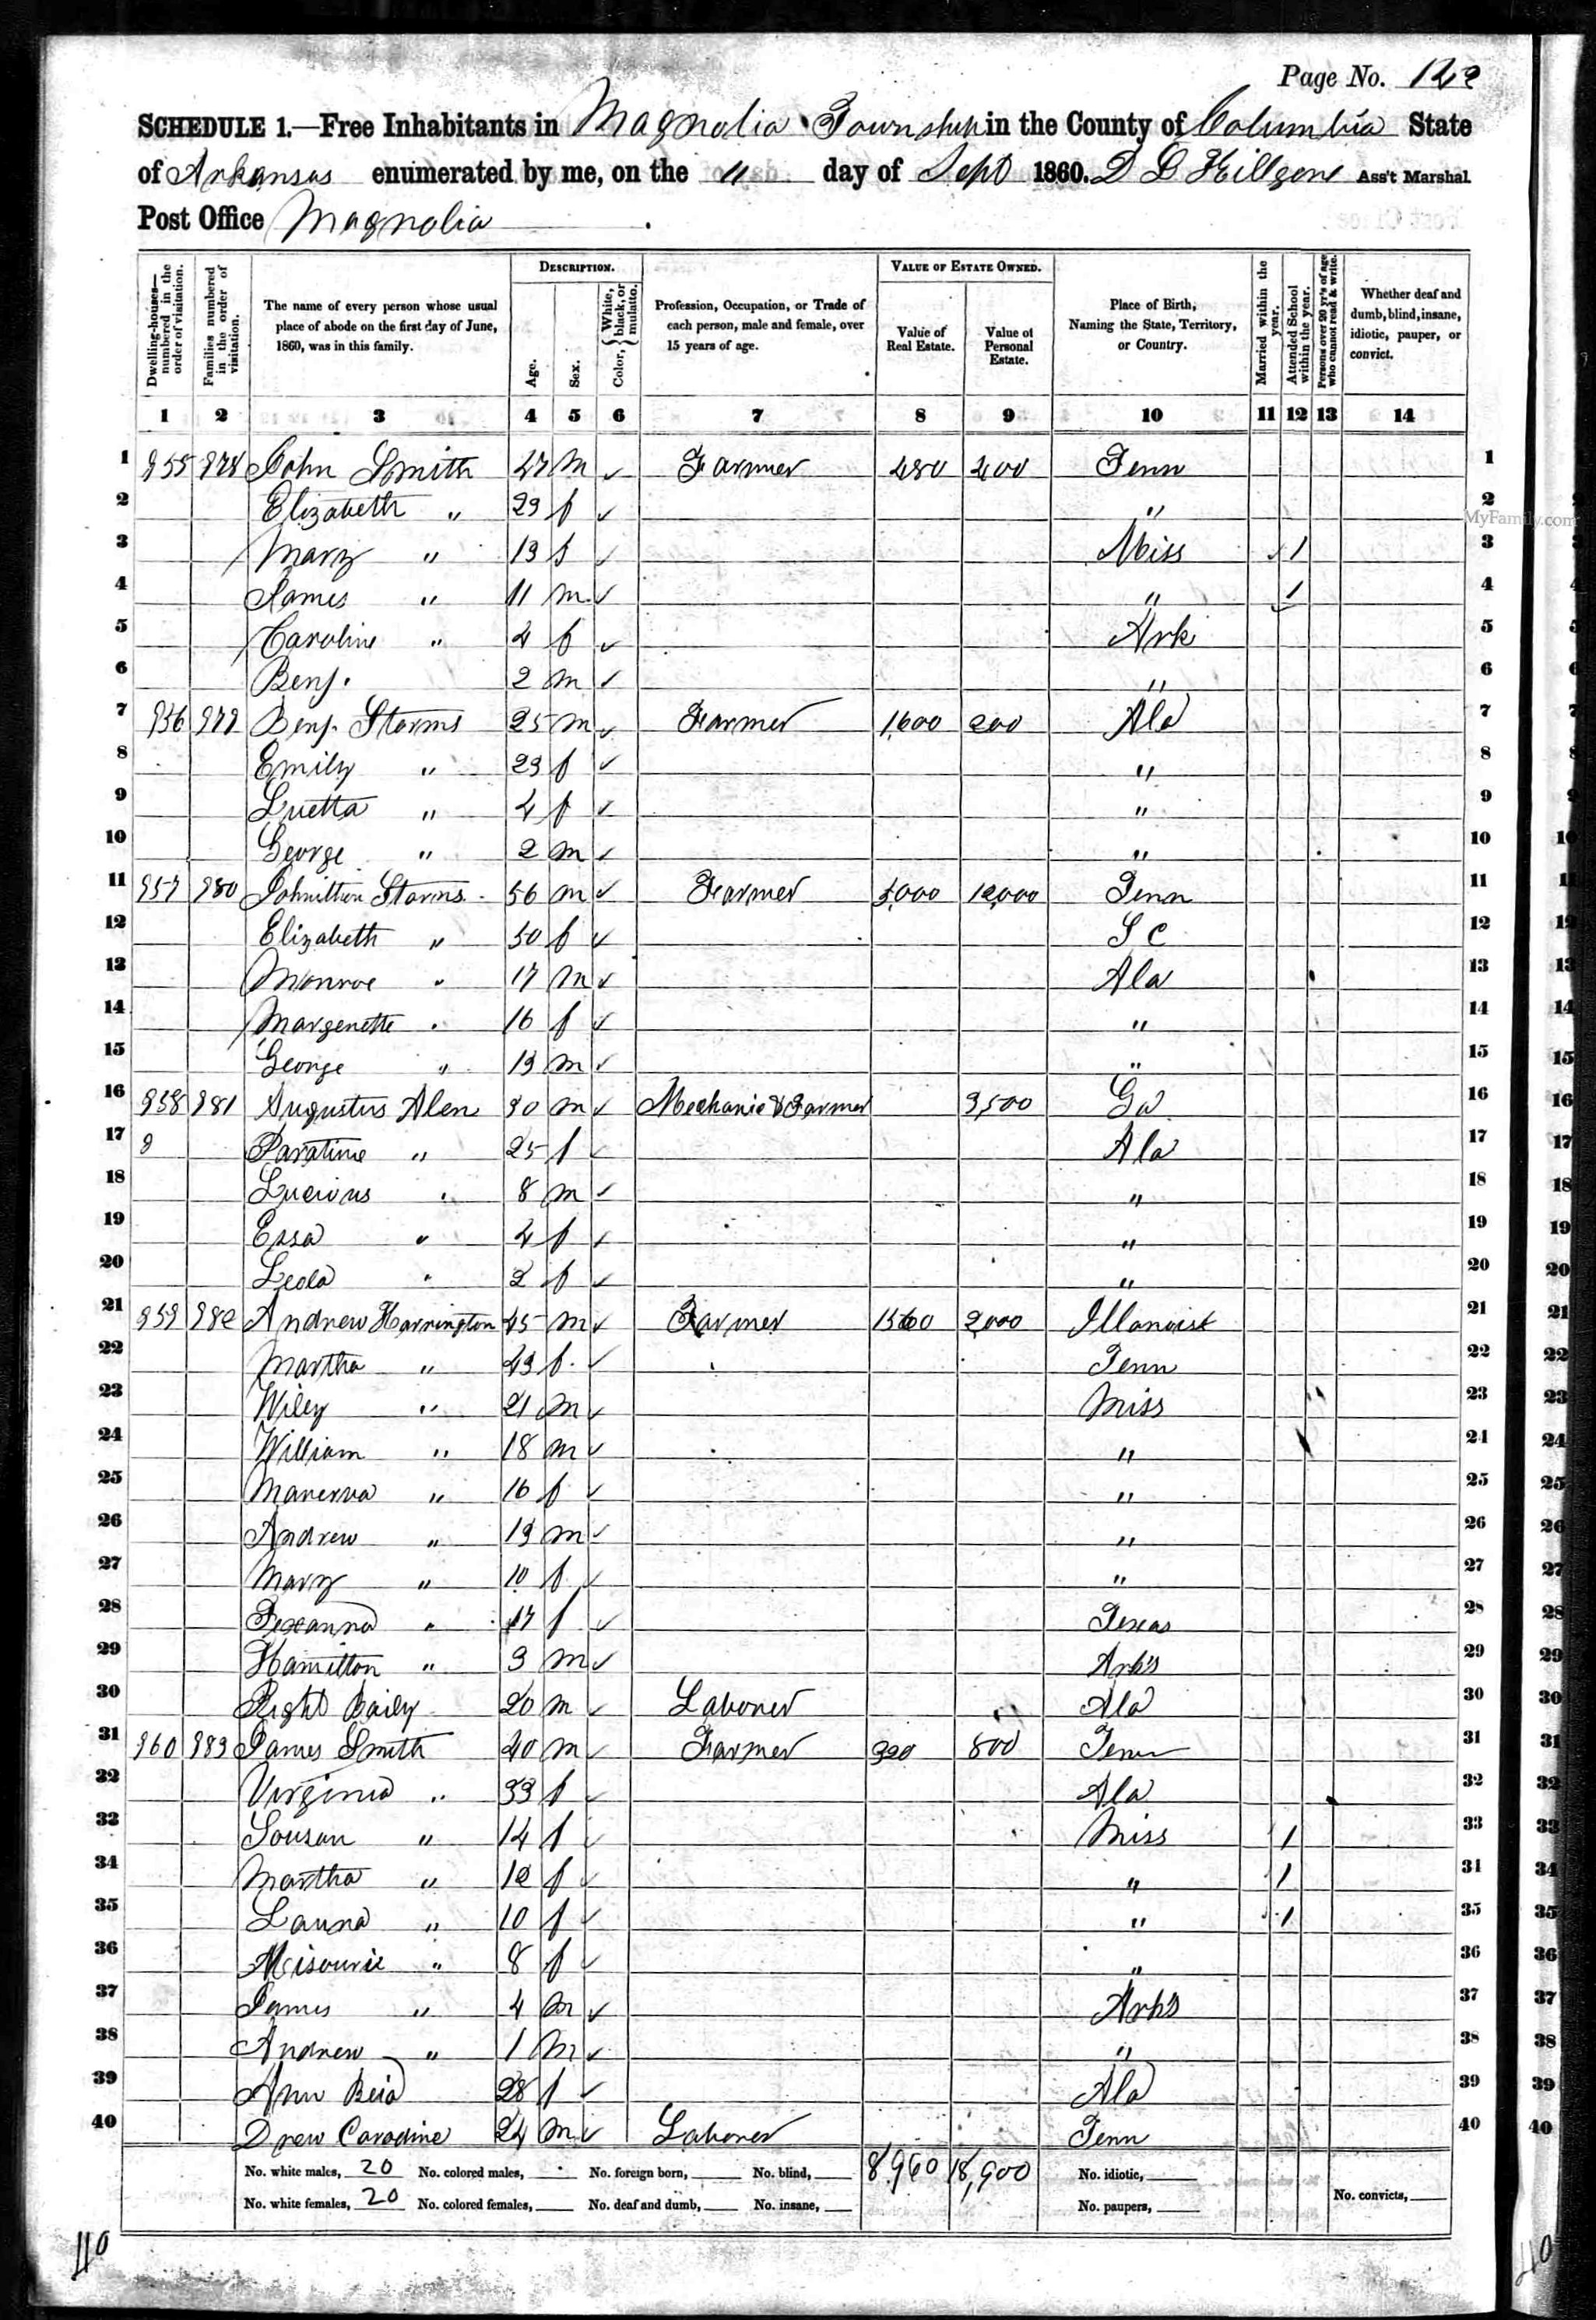 Page No. 122
SCHEDULE 1.—Free Inhabitants in Magnolia Township in the County of Columbia State
of Arkansas enumerated by me, on the 11 day of Sept 1860. D L Killgore Ass't Marshal.
Post Office Magnolia
Dwelling-houses—numbered in the order of visitation.
Families numbered in the order of visitation.
The name of every person whose usual place of abode on the first day of June, 1860, was in this family.
DESCRIPTION.
Age.
Sex.
Color, { White, black, or mulatto.
Profession, Occupation, or Trade of each person, male and female, over 15 years of age.
VALUE OF ESTATE OWNED.
Value of Real Estate.
Value of Personal Estate.
Place of Birth, Naming the State, Territory, or Country.
Married within the year.
Attended School within the year.
Persons over 20 yr's of age who cannot read & write.
Whether deaf and dumb, blind, insane, idiotic, pauper, or convict.
1 2 3 4 5 6 7 8 9 10 11 12 13 14
1 955 978 John Smith 47 m ✓ Farmer 480 400 Tenn 1
2 Elizabeth " 29 f ✓ " 2
MyFamily.com
3 Mary " 13 f ✓ Miss / 3
4 James " 11 m ✓ " / 4
5 Caroline " 4 f ✓ Ark 5
6 Benj. 2 m ✓ " 6
7 956 979 Benj. Storms 25 m ✓ Farmer 1,600 200 Ala 7
8 Emily " 23 f ✓ " 8
9 Luetta " 4 f ✓ " 9
10 George " 2 m ✓ " 10
11 957 980 Johnithon Storms 56 m ✓ Farmer 5,000 12,000 Tenn 11
12 Elizabeth " 50 f ✓ S C 12
13 Monroe " 17 m ✓ Ala 13
14 Margenette " 16 f ✓ " 14
15 George " 13 m ✓ " 15
16 958 981 Augustus Alen 30 m ✓ Mechanic & Farmer 3,500 Ga 16
17 Paratine " 25 f ✓ Ala 17
18 Lucious " 8 m ✓ " 18
19 Essa " 4 f ✓ " 19
20 Leola " 2 f ✓ " 20
21 959 982 Andrew Harrington 45 m ✓ Farmer 1560 2,000 Illanoise 21
22 Martha " 43 f ✓ Tenn 22
23 Wiley " 21 m ✓ Miss 23
24 William " 18 m ✓ " 24
25 Manerva " 16 f ✓ " 25
26 Andrew " 13 m ✓ " 26
27 Mary " 10 f ✓ " 27
28 Texanna " 7 f ✓ Texas 28
29 Hamilton " 3 m ✓ Ark's 29
30 Right Baily 20 m ✓ Laborer Ala 30
31 960 983 James Smith 40 m ✓ Farmer 320 800 Tenn 31
32 Virginia " 33 f ✓ Ala 32
33 Sousan " 14 f ✓ Miss / 33
34 Martha " 12 f ✓ " / 34
35 Launa " 10 f ✓ " / 35
36 Misourie " 8 f ✓ " 36
37 James " 4 m ✓ Ark's 37
38 Andrew " 1 m ✓ " 38
39 Ann 28 f ✓ Ala 39
40 Drew Caradine 24 m ✓ Laborer Tenn 40
No. white males, 20 No. colored males, No. foreign born, No. blind, 8,960 18,900 No. idiotic,
No. white females, 20 No. colored females, No. deaf and dumb, No. insane, No. paupers, No. convicts,
40